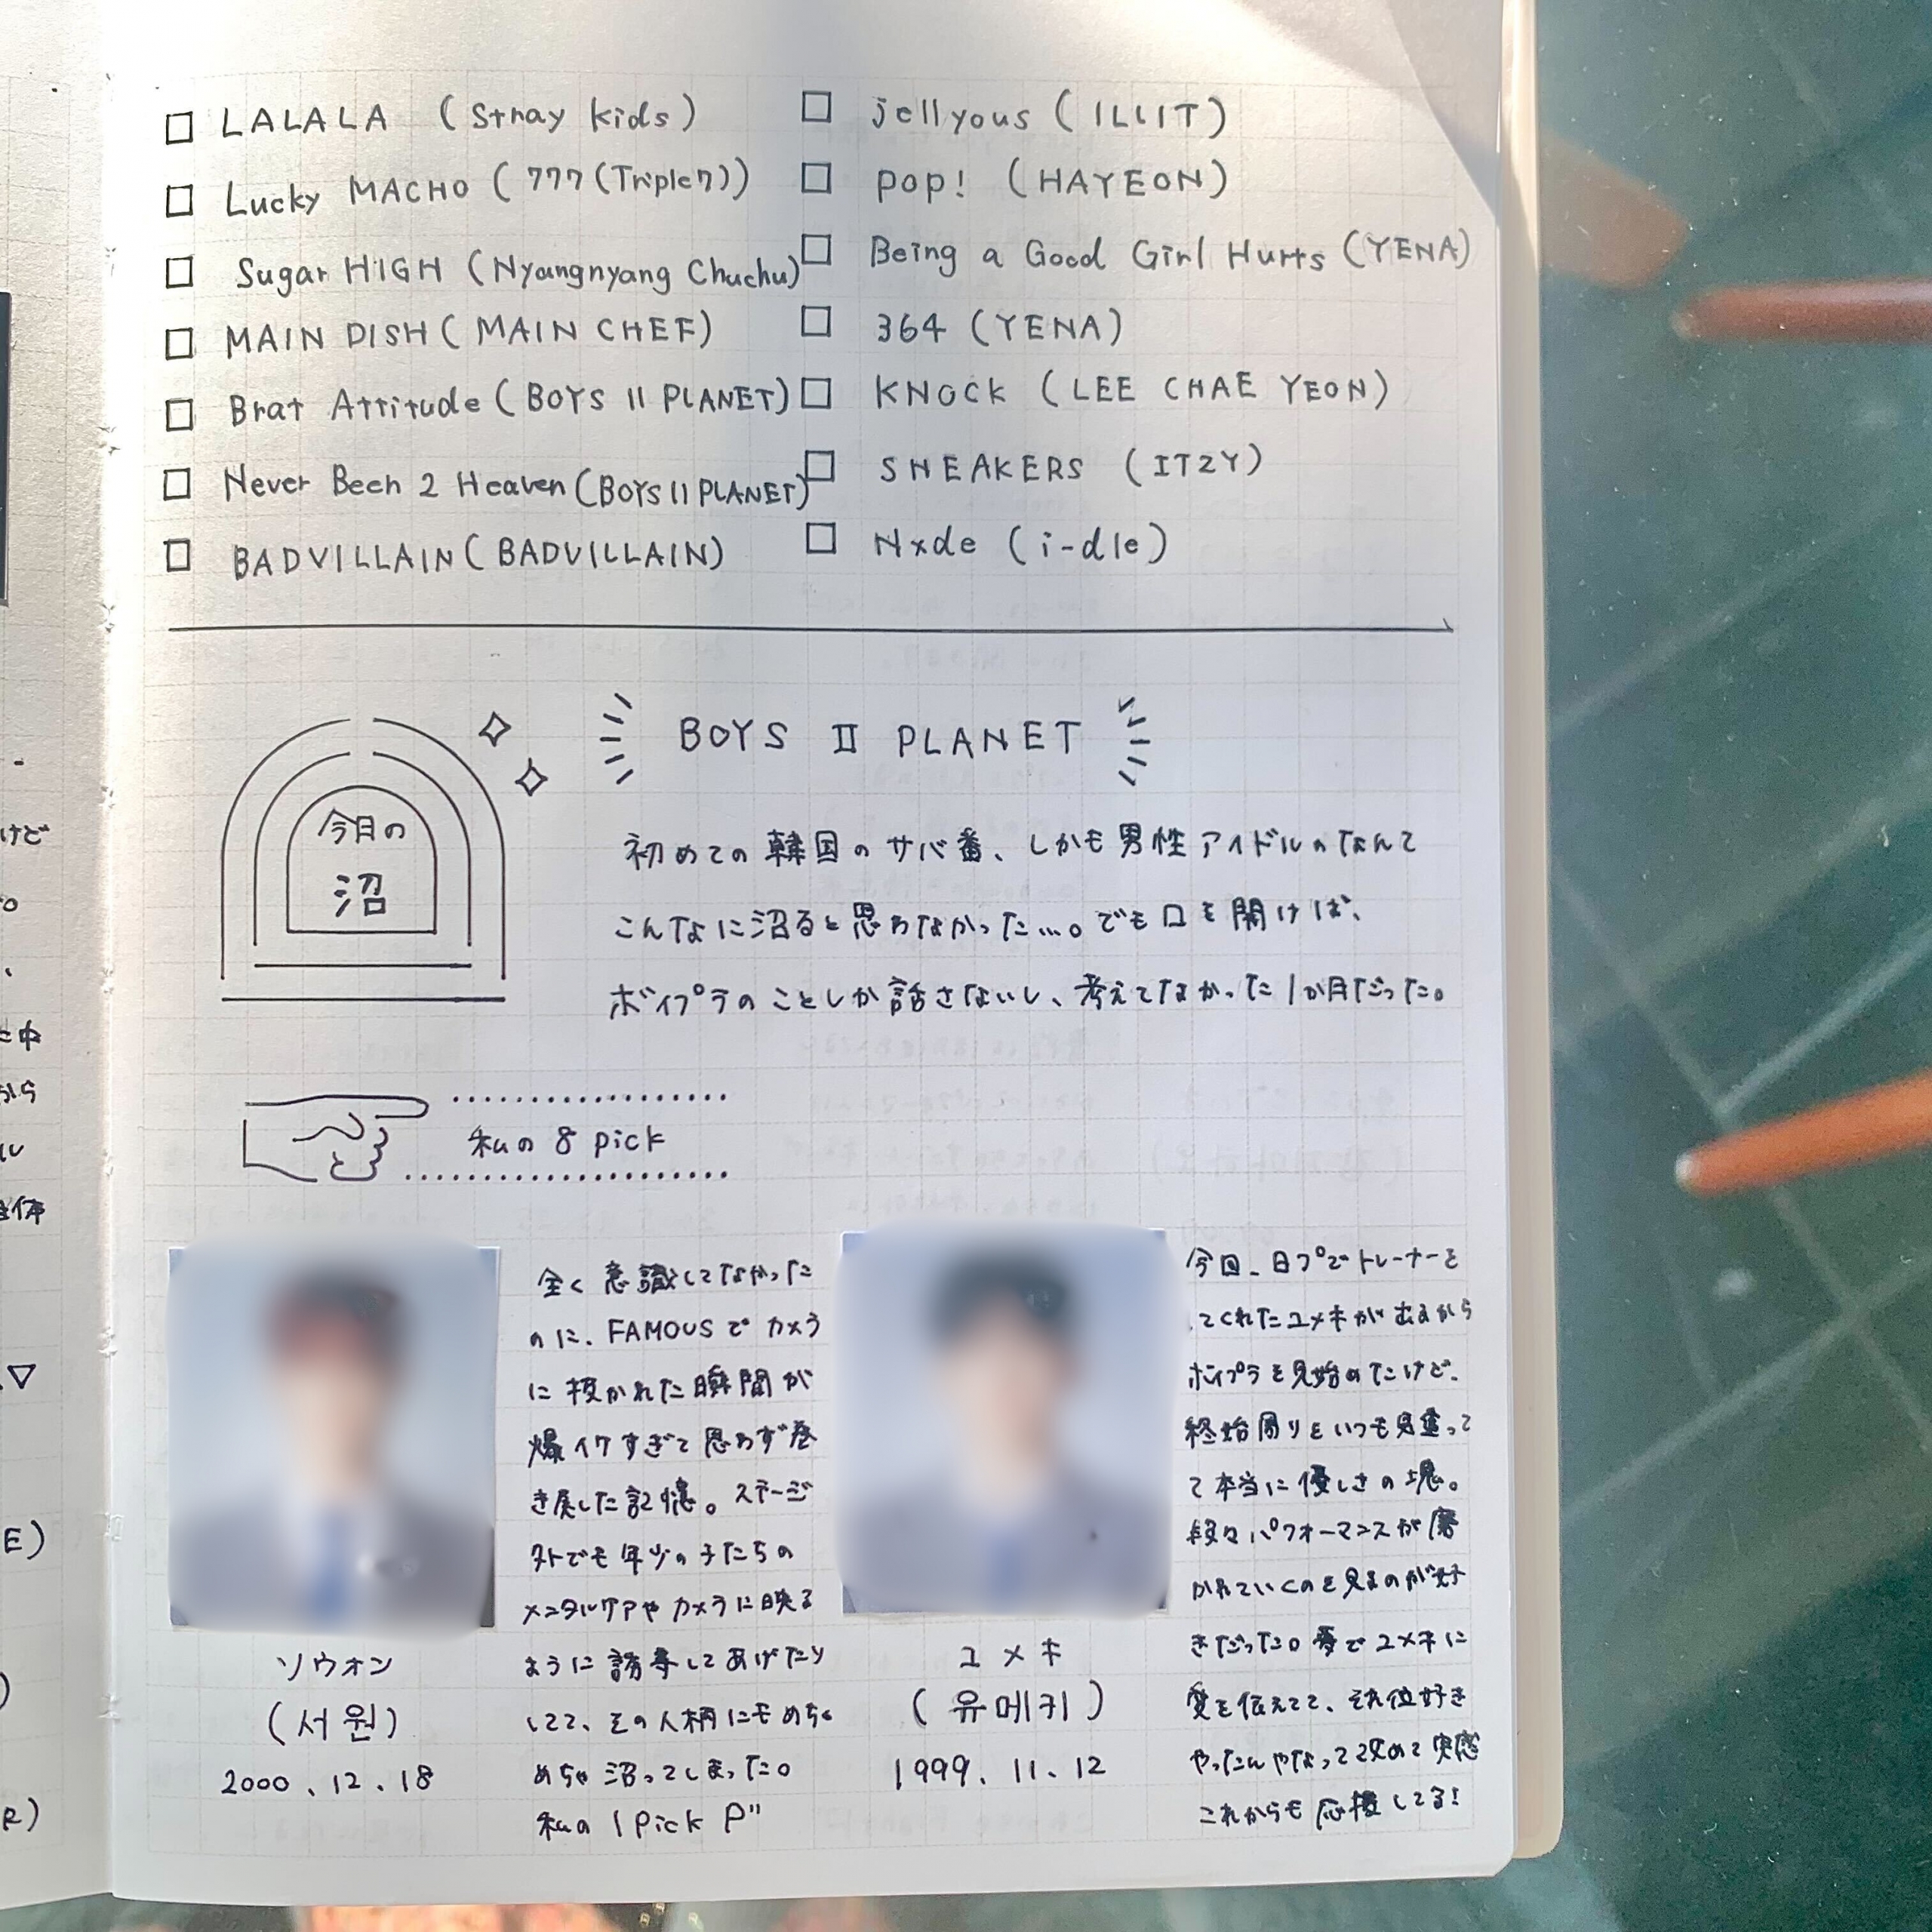 □ LALALA (Stray kids)
□ Lucky MACHO (777(Triple7))
□ Sugar HIGH (Nyangnyang Chuchu)
□ MAIN DISH (MAIN CHEF)
□ Brat Attitude (BOYS II PLANET)
□ Never Been 2 Heaven (BOYS II PLANET)
□ BADVILLAIN (BADVILLAIN)
□ jellyous (ILLIT)
□ pop! (HAYEON)
□ Being a Good Girl Hurts (YENA)
□ 364 (YENA)
□ KNOCK (LEE CHAE YEON)
□ SNEAKERS (ITZY)
□ Nxde (i-dle)
今日の
沼
BOYS II PLANET
初めての韓国のサバ番、しかも男性アイドルのなんて
こんなに沼ると思わなかった…。でも口を開けば、
ボイプラのことしか話さないし、考えてなかった1か月だった。
私の 8 pick
全く意識してなかった
のに、FAMOUSでカメラ
に抜かれた瞬間が
爆イケすぎて思わず巻
き戻した記憶。ステージ
外でも年少の子たちの
メンタルケアやカメラに映る
ように誘導してあげたり
してて、その人柄にもめちゃ
めちゃ沼ってしまった。
私の 1 pick
ソウォン
(서원)
2000.12.18
今回、日プでトレーナーを
してくれたユメキが出るから
ボイプラを見始めたけど、
終始周りをいつも見渡って
て本当に優しさの塊。
段々パフォーマンスが磨
かれていくのを見るのが好
きだった。夢でユメキに
愛を伝えてて、それ位好き
やったんやなって改めて実感
これからも応援してる!
ユメキ
(유메키)
1999.11.12
けど
から
E)
R)